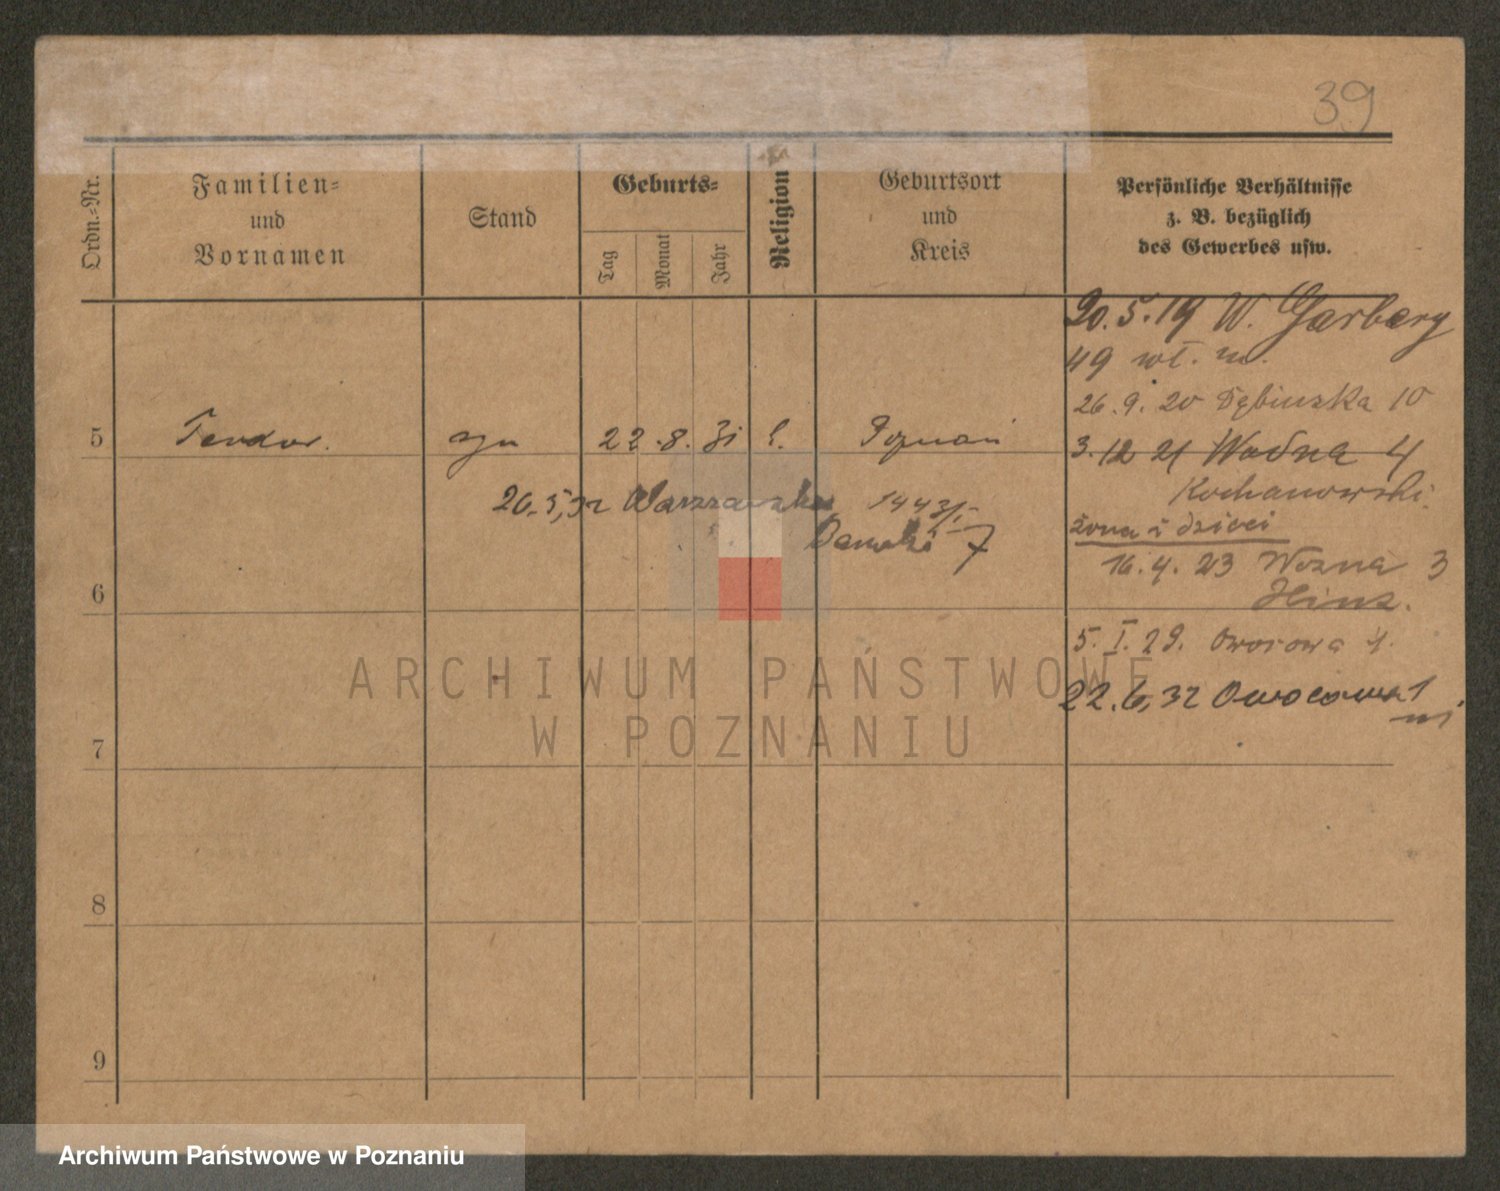 39
Ordn.-Nr.
Familien-
und
Vornamen
Stand
Geburts-
Tag
Monat
Jahr
Religion
Geburtsort
und
Kreis
Persönliche Verhältnisse
z. B. bezüglich
des Gewerbes usw.
20.5.19 W. Garbary
49 wł. m.
26.9.20 Dębinska 10
5 Teodor. syn 22.8.31 Poznań
3.12 21 Wodna 4
Kochanowski.
26.5,32 Warszawska 144
żona i dzieci
7
16.4.23 Wozna 3
6
5.I.29. Owocowa 1.
22.6,32 Owocowa 1
7
8
9
ARCHIWUM PAŃSTWOWE
W POZNANIU
Archiwum Państwowe w Poznaniu